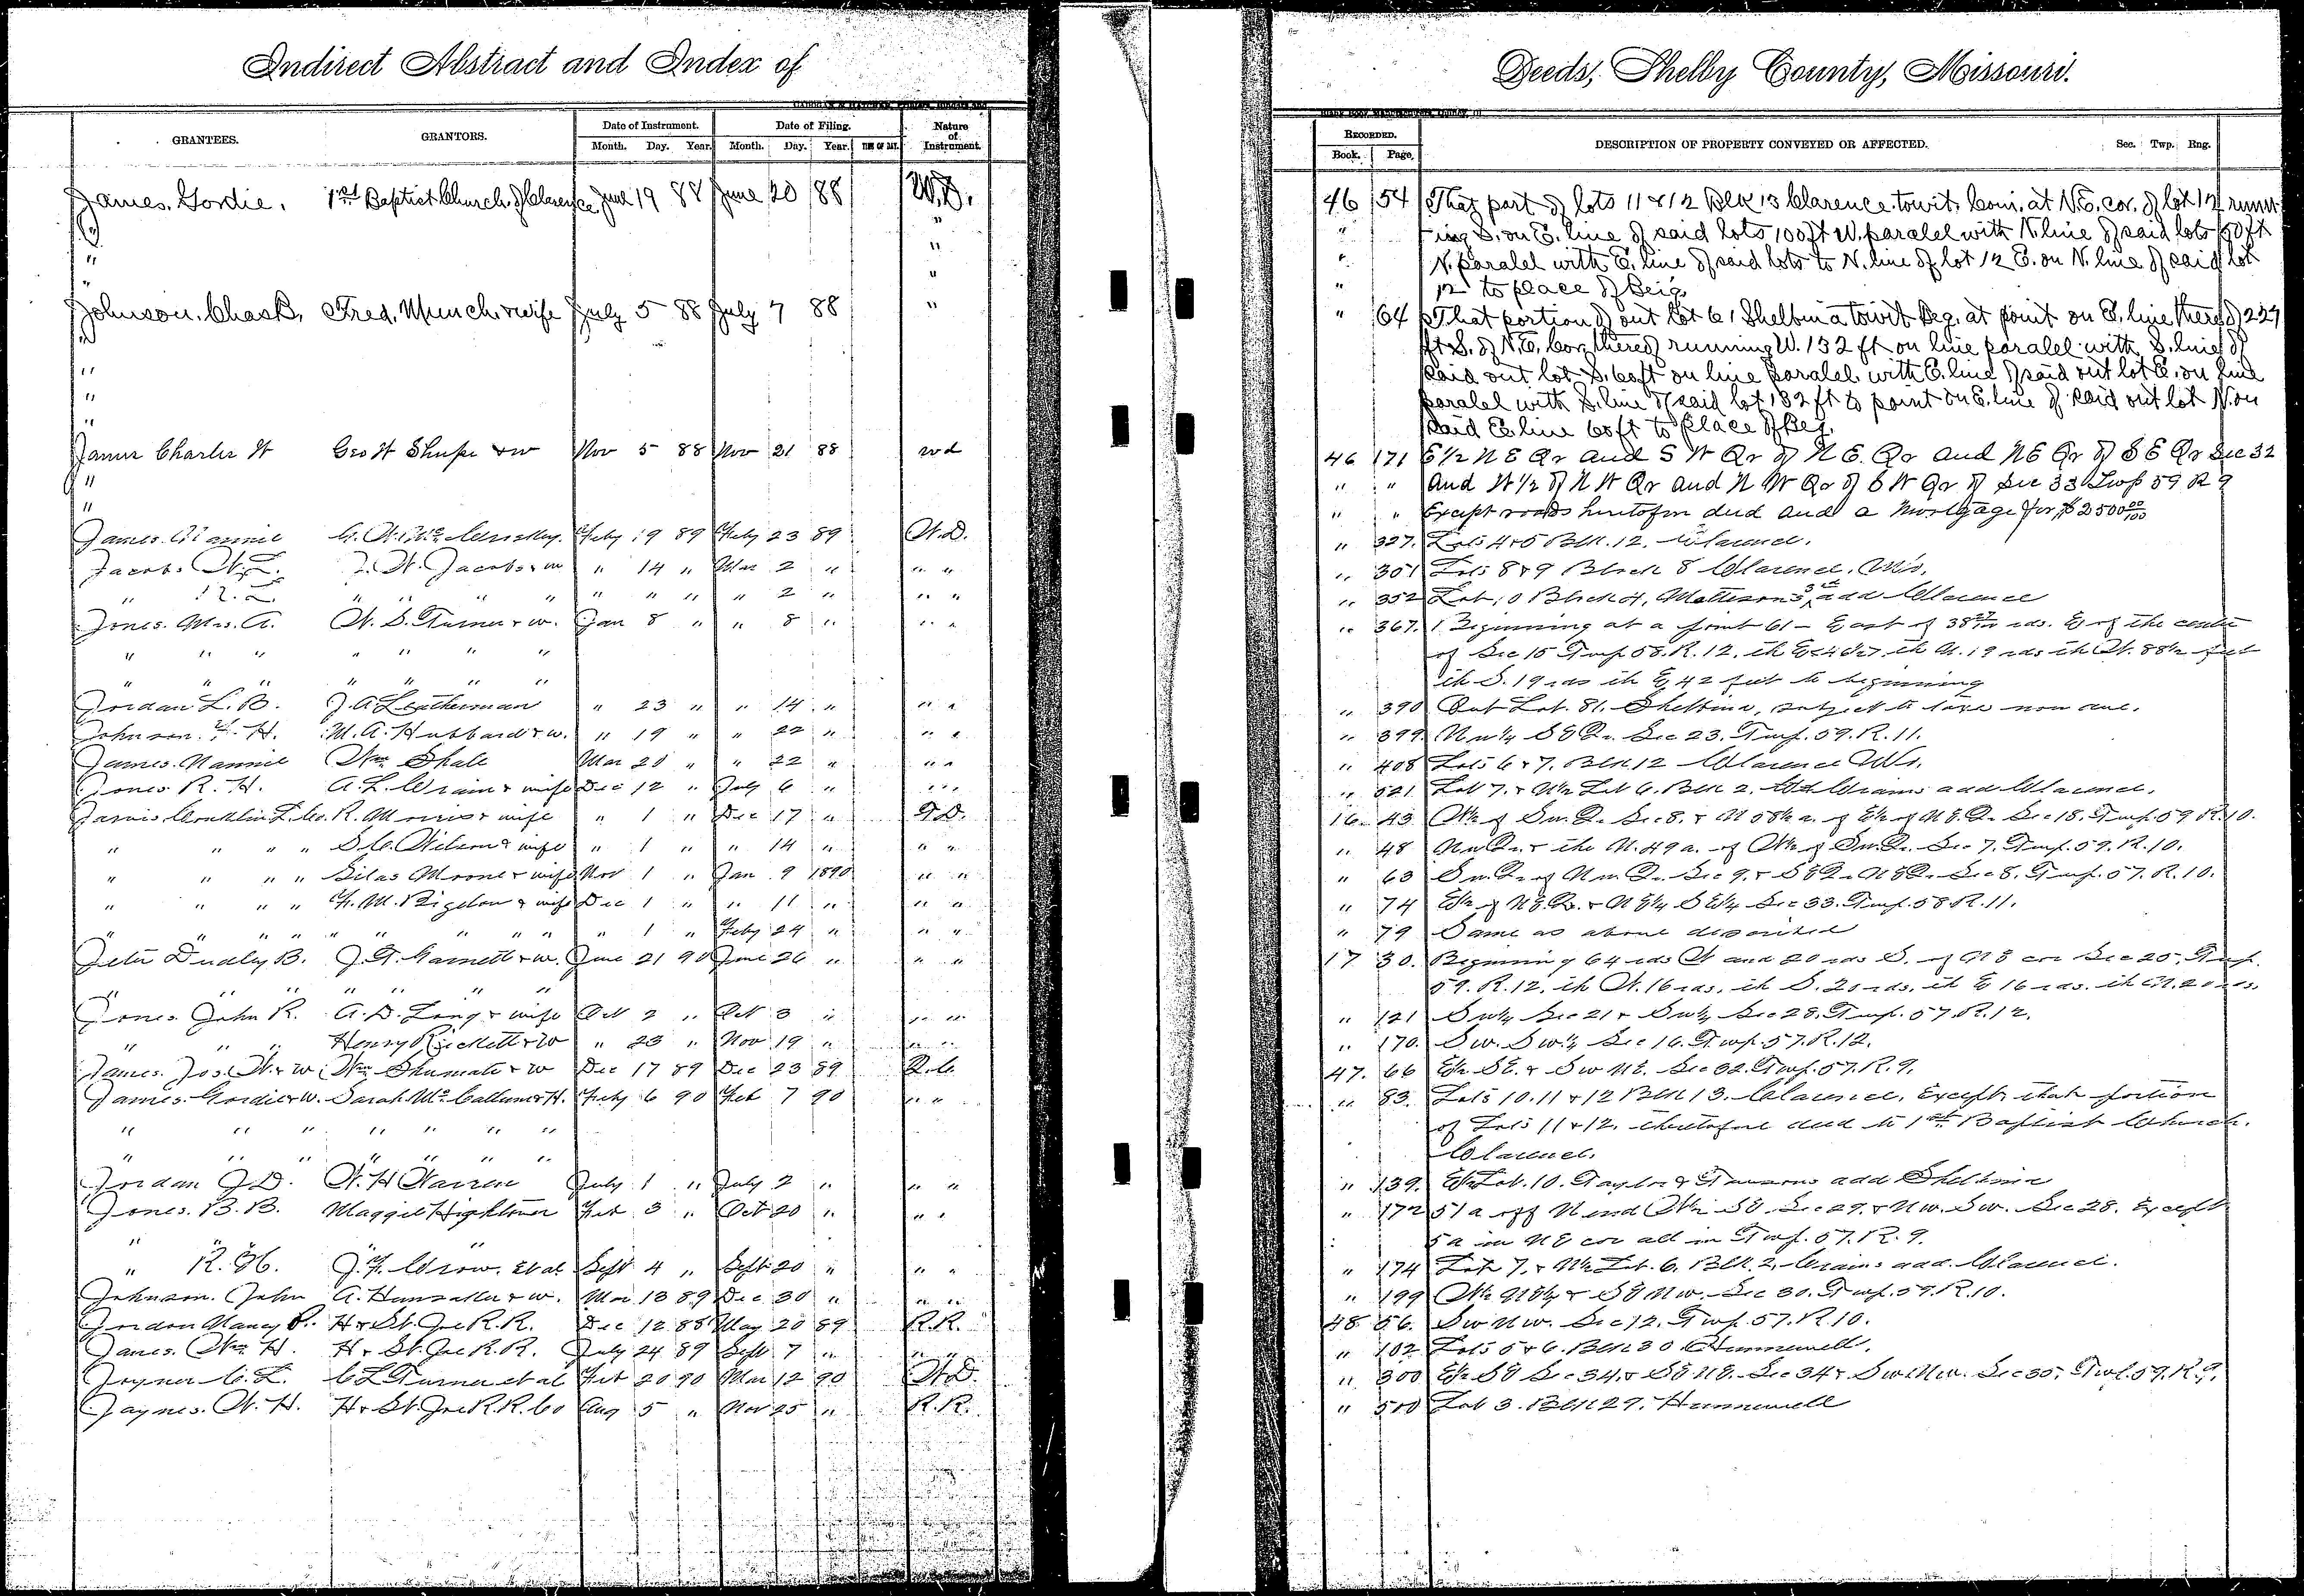 Indirect Abstract and Index of Deeds, Shelby County, Missouri.
GRANTEES. GRANTORS. Date of Instrument. Date of Filing. Nature of Instrument. RECORDED. DESCRIPTION OF PROPERTY CONVEYED OR AFFECTED. Sec. Twp. Rng.
Month. Day. Year. Month. Day. Year. TIME OF DAY. Book. Page.
James, Gordie, 1st Baptist Church of Clarence June 19 88 June 20 88 W.D. 46 54 That part of lots 11 & 12 Blk 13 Clarence towit, Com. at N.E. cor. of lot 12 runn
" " " ing S. on E. line of said lots 100 ft W. paralel with N. line of said lots 50 ft
" " " N. paralel with E. line of said lots to N. line of lot 12 E. on N. line of said lot
" " " 12 to place of Beig
Johnson, Chas B, Fred, Munch & wife July 5 88 July 7 88 " " 64 That portion of out lot 61 Shelbina towit Beg. at point on E. line thereof 227
ft S. of N.E. Cor thereof running W. 132 ft on line paralel with S. line of
" said out lot S. 60 ft on line paralel with E. line of said out lot E. on line
" paralel with S. line of said lot 132 ft to point on E. line of said out lot N. on
" said E. line 60 ft to place of Beg.
James Charles W Geo W Shupe & w Nov 5 88 Nov 21 88 wd 46 171 E 1/2 N E Qr and S W Qr of N E. Qr and N E Qr of S E Qr Sec 32
" " " And W 1/2 of N W Qr and N W Qr of S W Qr of Sec 33 Twp 59 R 9
" " " Except roads heretofore deed and a Mortgage for $2500 00/100
James Nannie Feby 19 89 Feby 23 89 W.D. " 327. Lots 4 & 5 Blk. 12. Clarence.
Jacobs W. L. J. W. Jacobs & w " 14 " Mar 2 " " " " 351 Lots 8 & 9 Block 8 Clarence. Mo.
" " " " " " " " " 2 " " " " 352 Lot 10 Block 4, 3rd add Clarence
Jones. Mrs. A. W. S. Turner & w. Jan 8 " " 8 " " " " 367. Beginning at a point 61 East of rds. E of the center
" " " " " " " of Sec 15 Twp 58. R. 12. th N. 19 rds th W. 88 1/2 feet
" " " " " " " th S. 19 rds th E 42 feet to beginning
Jordan L. B. J. A. Leatherman " 23 " " 14 " " " " 390 Out Lot. 81. Shelbina, subject to taxes now due.
Johnson. F. H. M. A. Hubbard & w. " 19 " " 22 " " " " 399. N w 1/4 S E Qr. Sec 23. Twp. 59. R. 11.
James. Nannie Wm Shale Mar 20 " " 22 " " " " 408 Lots 6 & 7. Blk 12 Clarence Mo.
Jones R. H. A. L. Crain & wife Dec 12 " July 6 " " " " 521 Lot 7. & N 1/2 Lot 6. Blk 2. Crains add Clarence.
Jarvis Conklin T. Co. R. Morris & wife " 1 " Dec 17 " T.D. 16. 43 W 1/2 of Sw. Qr. Sec 8. & N 58 1/2 a. of E 1/2 of N E. Qr. Sec 18. Twp. 59 R. 10.
" " " " S. C. Wilson & wife " 1 " " 14 " " " " 48 Nw Qr. & the N. 49 a. of W 1/2 of Sw. Qr. Sec 7. Twp. 59. R. 10.
" " " " Silas Moone & wife Nov 1 " Jan 9 1890 " " " 63 Sw. Qr. of Nw. Qr. Sec 9. & S E Qr. N E Qr. Sec 8. Twp. 57. R. 10.
" " " " F. M. Bigelow & wife Dec 1 " " 11 " " " " 74 E 1/2 of N E. Qr. & N E 1/4 S E 1/4 Sec 33. Twp. 58 R. 11.
" " " " " " " " " 1 " Feby 24 " " " " 79 Same as above described
Jeter Dudley B. J. T. Garnett & w. June 21 90 June 26 " " " 17 30. Beginning 64 rds W and 20 rds S. of N E cor Sec 25. Twp.
" " " " " " 59. R. 12, th W. 16 rds, th S. 20 rds, th E 16 rds. th N. 20 rds.
Jones. John R. A. D. Long & wife Oct 2 " Oct 3 " " " " 121 Sw 1/4 Sec 21 & Sw 1/4 Sec 28. Twp. 57. R. 12.
" " " Henry Ricketts & w " 23 " Nov 19 " " " " 170. Sw. Sw 1/4 Sec 16. Twp. 57. R. 12.
James. Jos. W. & w Wm Shumate & w Dec 17 89 Dec 23 89 Q.C. 47. 66 E 1/2 S E. & Sw N E. Sec 32. Twp. 57. R. 9.
James. Gordie & w. Sarah McCallum & H. Feby 6 90 Feb 7 90 " " " 83. Lots 10. 11 & 12 Blk 13. Clarence. Except that portion
" " " " " " " of Lots 11 & 12. heretofore deed to 1st Baptist Church.
" " " " " " " Clarence.
Jordan J. D. W. H. Warren July 1 " July 2 " " " " 139. E 1/2 Lot. 10. Taylor & add Shelbina
Jones. B. B. Maggie Hightower Feb 3 " Oct 20 " " " " 172 51 a off N end W 1/2 S E. Sec 29. & N w. Sw. Sec 28. Except
" " " 5 a in N E cor all in Twp. 57. R. 9.
" R. H. J. F. Crow. et al Sept 4 " Sept 20 " " " " 174 Lot 7. & N 1/2 Lot. 6. Blk. 2. Crains add. Clarence.
Johnson. John A. Hunsaker & w. Mar 13 89 Dec 30 " " " " 199 W 1/2 N E 1/4 & S E N w. Sec 30. Twp. 59. R. 10.
Jordan Nancy P. H & St. Joe R. R. Dec 12 88 May 20 89 R.R. 48 56. Sw N w. Sec 12. Twp. 57. R. 10.
James. Wm H. H & St. Joe R. R. July 24 89 Sept 7 " " " " 102 Lots 5 & 6. Blk 30 Hunnewell.
Joyner C. L. C L Turner et al Feb 20 90 Mar 12 90 W.D. " 300 E 1/2 S E Sec 34. & S E N E. Sec 34 & Sw. Nw. Sec 35. Twp. 59. R. 9.
Jaynes. W. H. H & St. Joe R. R. Co Aug 5 " Nov 25 " R.R. " 500 Lot 3. Blk 29. Hunnewell